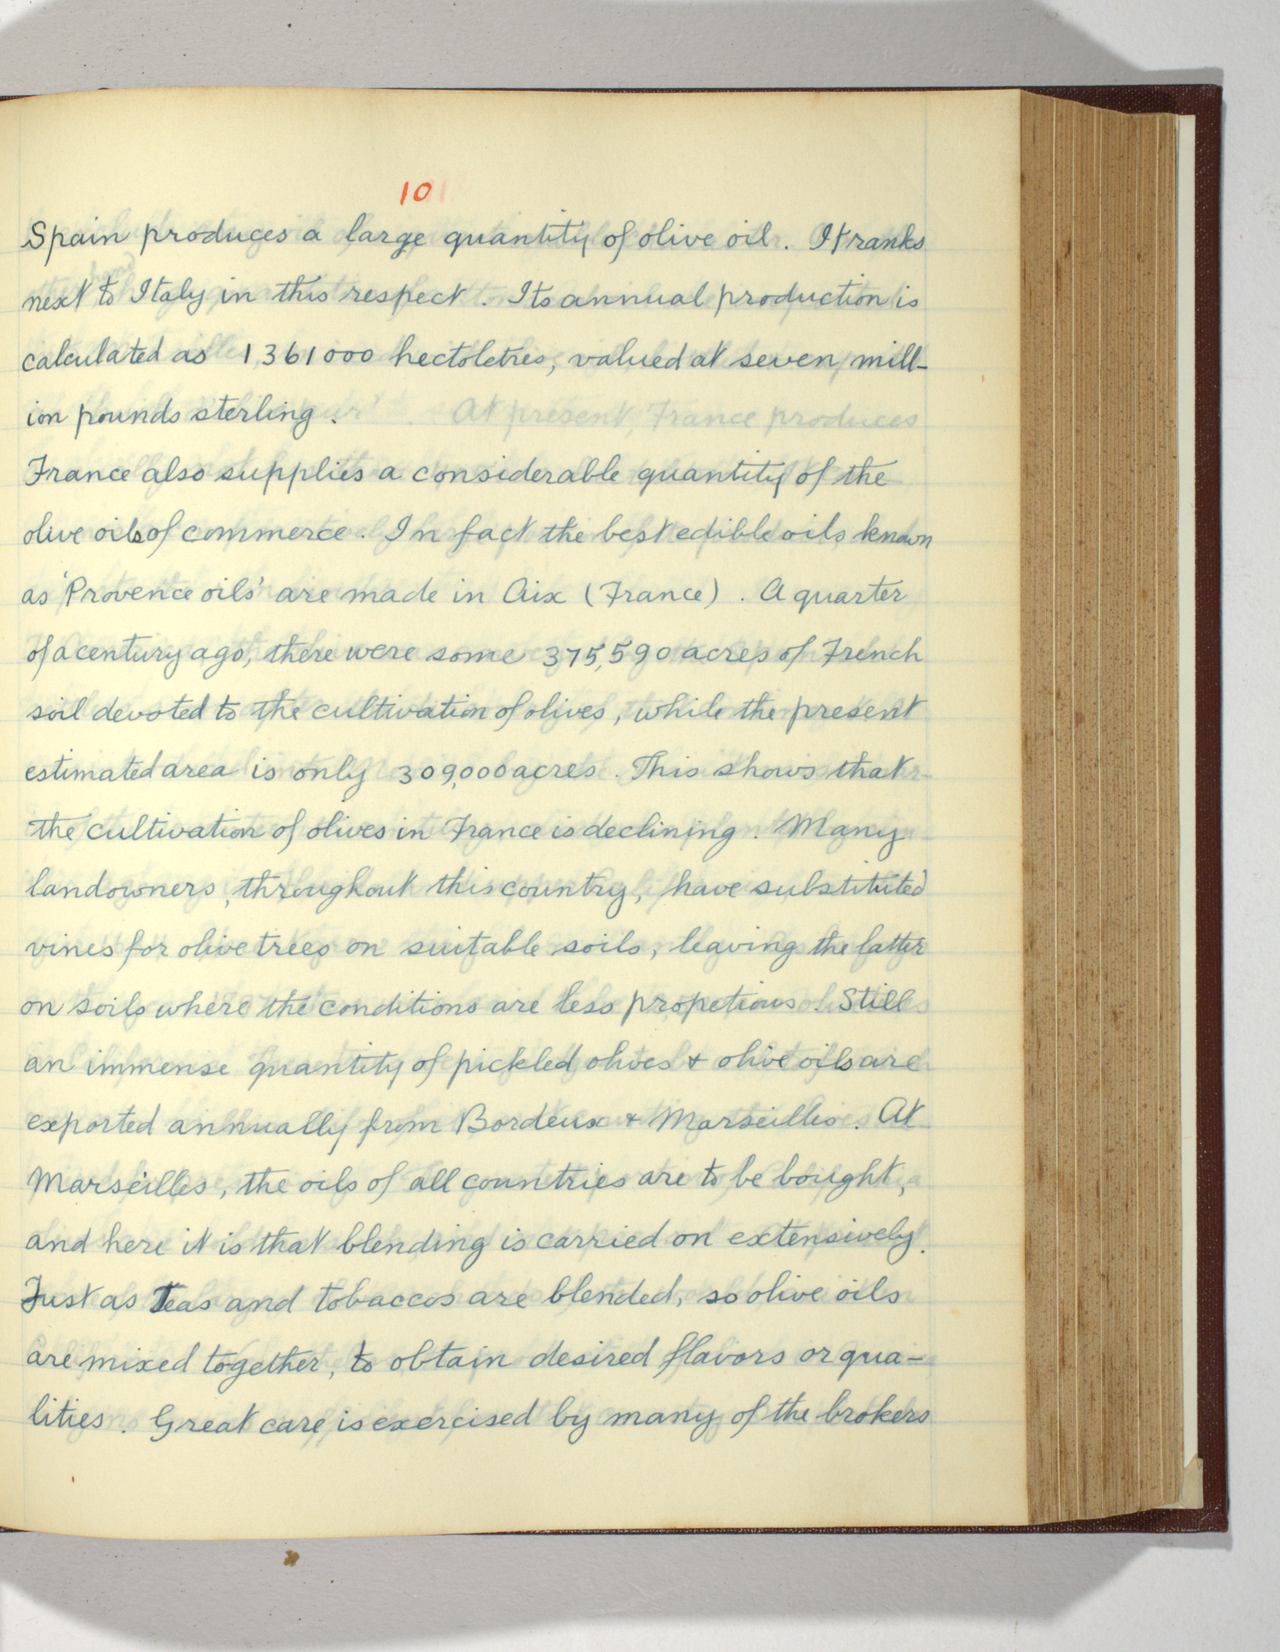 10
Spain produces a large quantity of olive oil. It ranks
next to Italy in this respect. Its annual production is
calculated as 1361000 hectoletres, valued at seven mill-
ion pounds sterling.
France also supplies a considerable quantity of the
olive oils of commerce. In fact the best edible oils known
as 'Provence oils' are made in Aix (France). A quarter
of a century ago, there were some 375,590 acres of French
soil devoted to the cultivation of olives, while the present
estimated area is only 309,000 acres. This shows that
the cultivation of olives in France is declining. Many
landowners, throughout this country, have substituted
vines for olive trees on suitable soils, leaving the latter
on soils where the conditions are less propetious. Still
an immense quantity of pickled olives & olive oils are
exported annually from Bordeux & Marseilles. At
Marseilles, the oils of all countries are to be bought,
and here it is that blending is carried on extensively.
Just as Teas and tobaccos are blended, so olive oils
are mixed together, to obtain desired flavors or qua-
lities. Great care is exercised by many of the brokers